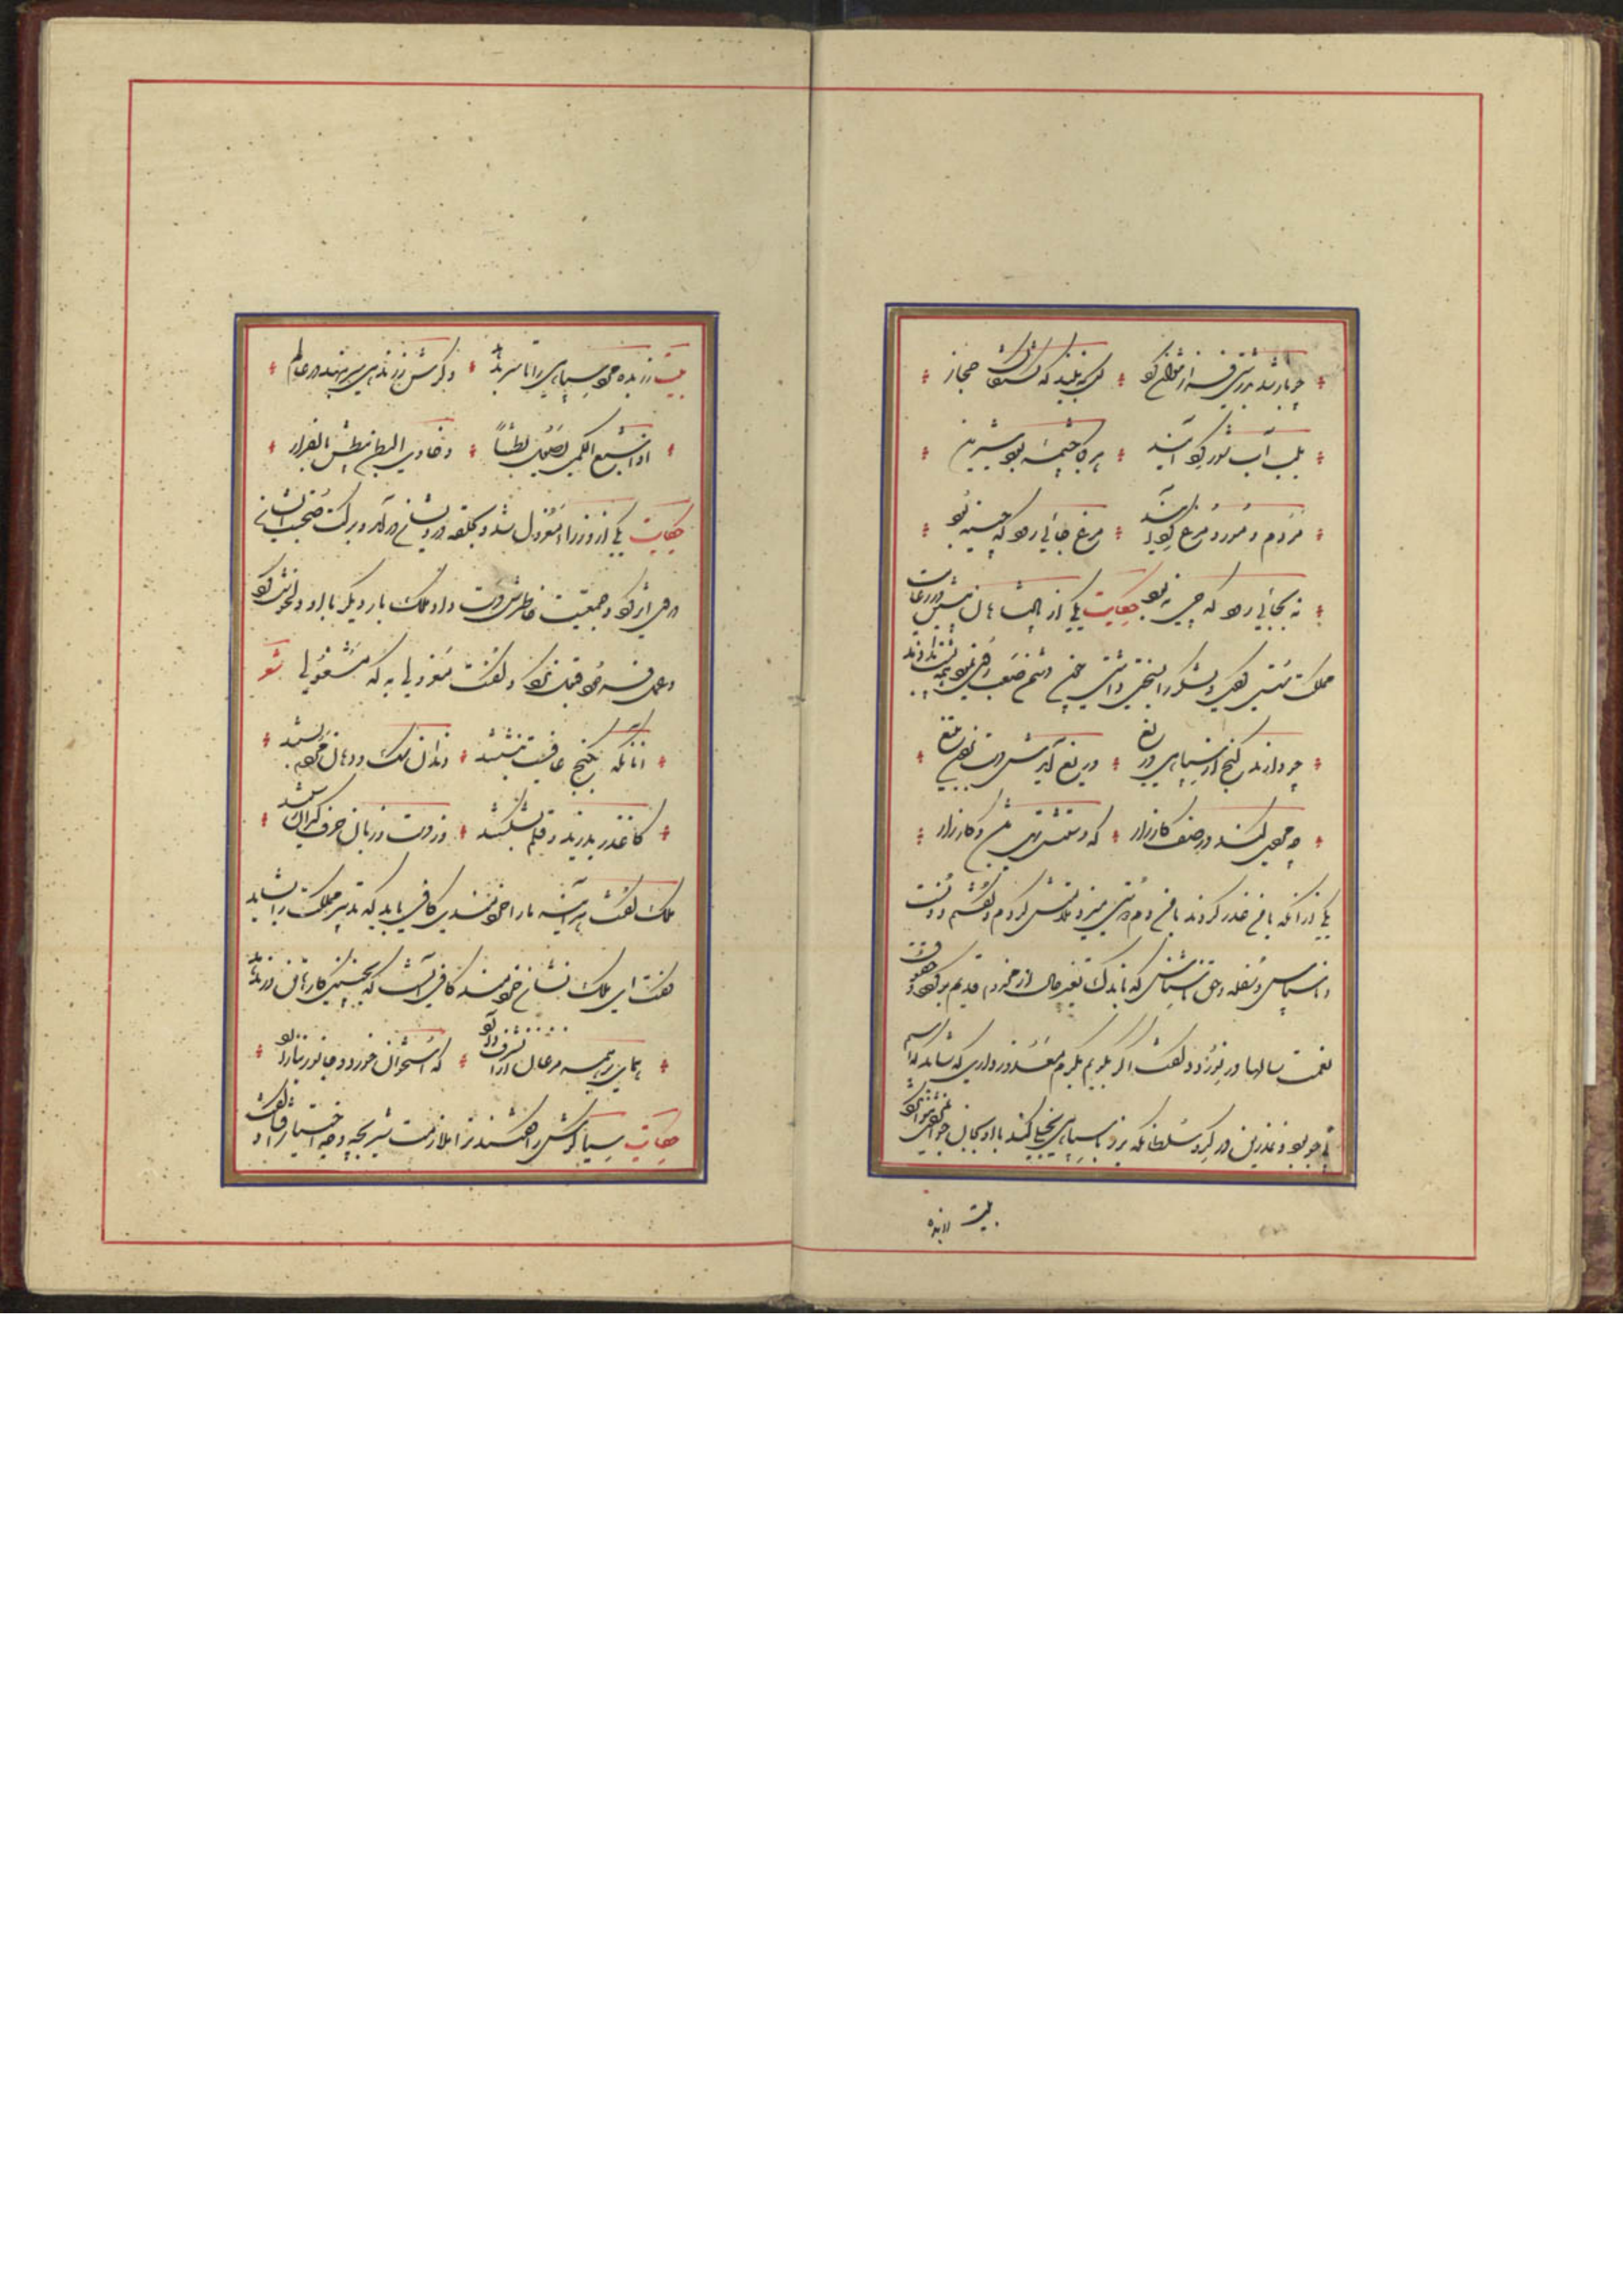 چو باشد بدرویشی فراز
کس نبیند که تشنگان حجاز
بلب آب شور گرد آیند
هر کجا چشمه بود شیرین
مردم و مور و مرغ گرد آیند
مرغ جائی رود که چینه بود
نه بجائی رود که چی نبود حکایت یکی از پادشاهان پیشین در رعایت
مملکت سستی کردی و لشکر را بسختی داشتی چون دشمنی صعب روی نمود همه پشت دادند
چو دارند گنج از سپاهی دریغ
دریغ آیدش دست بردن بتیغ
چه مردی کند در صف کارزار
که دستش تهی باشد و کار زار
یکی از آنکه غدر کردند با من دم دوستی میزد ملامتش کردم و گفتم دونست
و ناسپاس و سفله و حق ناشناس که باندک تغیر حال از مخدوم قدیم برگردد و حقوق
نعمت سالها در نوردد گفت ار بکرم معذور داری شاید که اسبم
بی جو بود و نمدزین در گرو سلطان که بزر با سپاهی بخیلی کند با او بجان جوانمردی نتوان کرد
بیت زر بده
بیت زر بده مرد سپاهی را تا سر بنهد
و گرش زر ندهی سر بنهد در عالم
اذا شبع الکمی یصول بطشا
و خاوی البطن یبطش بالفرار
حکایت یکی از وزرا معزول شد و بحلقه درویشان در آمد و برکت صحبت ایشان
در وی اثر کرد و جمعیت خاطرش دست داد ملک بار دیگر با او دل خوش کرد
و عمل فرمود قبول نکرد و گفت معزولی به که مشغولی شعر
آنانکه بکنج عافیت بنشستند
دندان سگ و دهان مردم بستند
کاغذ بدریدند و قلم بشکستند
وز دست و زبان حرف گیران رستند
ملک گفت هر آینه ما را خردمندی کافی باید که تدبیر مملکت را شاید
گفت ای ملک نشان خردمند کافی آنست که بچنین کارها تن در ندهد
همای بر همه مرغان از آن شرف دارد
که استخوان خورد و جانور نیازارد
حکایت سیاه گوش را گفتند ترا ملازمت شیر بچه وجه اختیار افتاد گفت